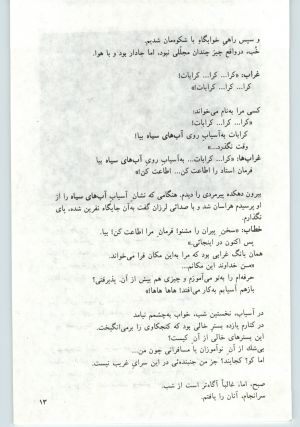 و سپس راهی خوابگاهِ با شکوه‌مان شدیم.
خُب، درواقع چیز چندان مجلّلی نبود، اما جادار بود و با هوا.
غراب: «کرا... کرا... کرابات!
کرا... کرا... کرابات!»
کسی مرا به‌نام می‌خواند:
«کرا... کرا... کرابات!
کرابات به‌آسیابِ رویِ آب‌های سیاه بیا
وقت نگذرد...»
غراب‌ها: «کرا... کرابات... به‌آسیابِ رویِ آب‌های سیاه بیا
فرمان استاد را اطاعت کن... اطاعت کن!»
بیرون دهکده پیرمردی را دیدم. هنگامی که نشان آسیابِ آب‌های سیاه را از
او پرسیدم هراسان شد و با صدائی لرزان گفت به‌آن جایگاه نفرین شده، پای
نگذارم.
خطاب: «سخن پیران را مشنو! فرمان مرا اطاعت کن! بیا.
پس اکنون در اینجائی.»
همان بانگ غرابی بود که مرا به‌این مکان فرا می‌خواند.
«من خداوند این مکانم...
حرفه‌ام را به‌تو می‌آموزم و چیزی هم بیش از آن. پذیرفتی؟
بازهم آسیابم به‌کار می‌افتد! هاها هاها!»
در آسیاب، نخستین شب، خواب به‌چشمم نیامد
در کنارم یازده بستر خالی بود که کنجکاوی را برمی‌انگیخت.
این بسترهای خالی از آنِ کیست؟
بی‌شک از آنِ نوآموزان یا مسافرانی چون من...
اما کو؟ کجایند؟ جز من جنبنده‌ئی در این سرایِ غریب نیست.
صبح، اما، غالباً آگاه‌تر است از شب.
سرانجام، آنان را یافتم.
۱۳